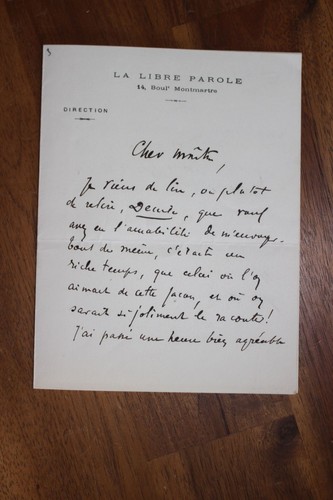 3
LA LIBRE PAROLE
14, Boulᵈ Montmartre
DIRECTION
Cher maître,
Je viens de lire, ou plutôt
de relire, que vous
avez eu l'amabilité de m'envoyer.
tout de même, c'était un
riche temps, que celui où l'on
aimait de cette façon, et où on
savait si joliment le raconter!
J'ai passé une heure bien agréable